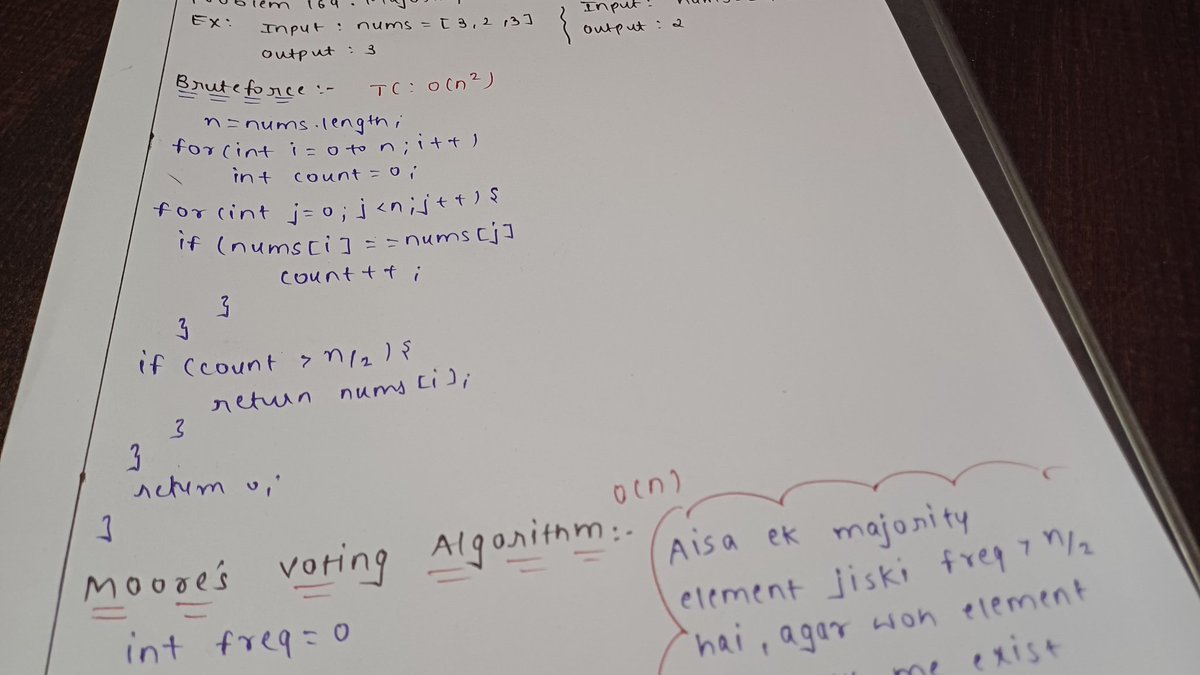 Problem 169. Major
EX: Input : nums = [3,2,3]
output : 3
Input :
output : 2
Bruteforce :- TC: O(n²)
n=nums.length;
for(int i=0 to n; i++)
int count = 0;
for(int j=0; j<n;j++){
if (nums[i] == nums[j]
count++;
}
}
if (count > n/2){
return nums[i];
}
}
return 0;
}
Moore's voting Algorithm:- O(n)
int freq=0
Aisa ek majority
element jiski freq > n/2
hai, agar woh element
me exist